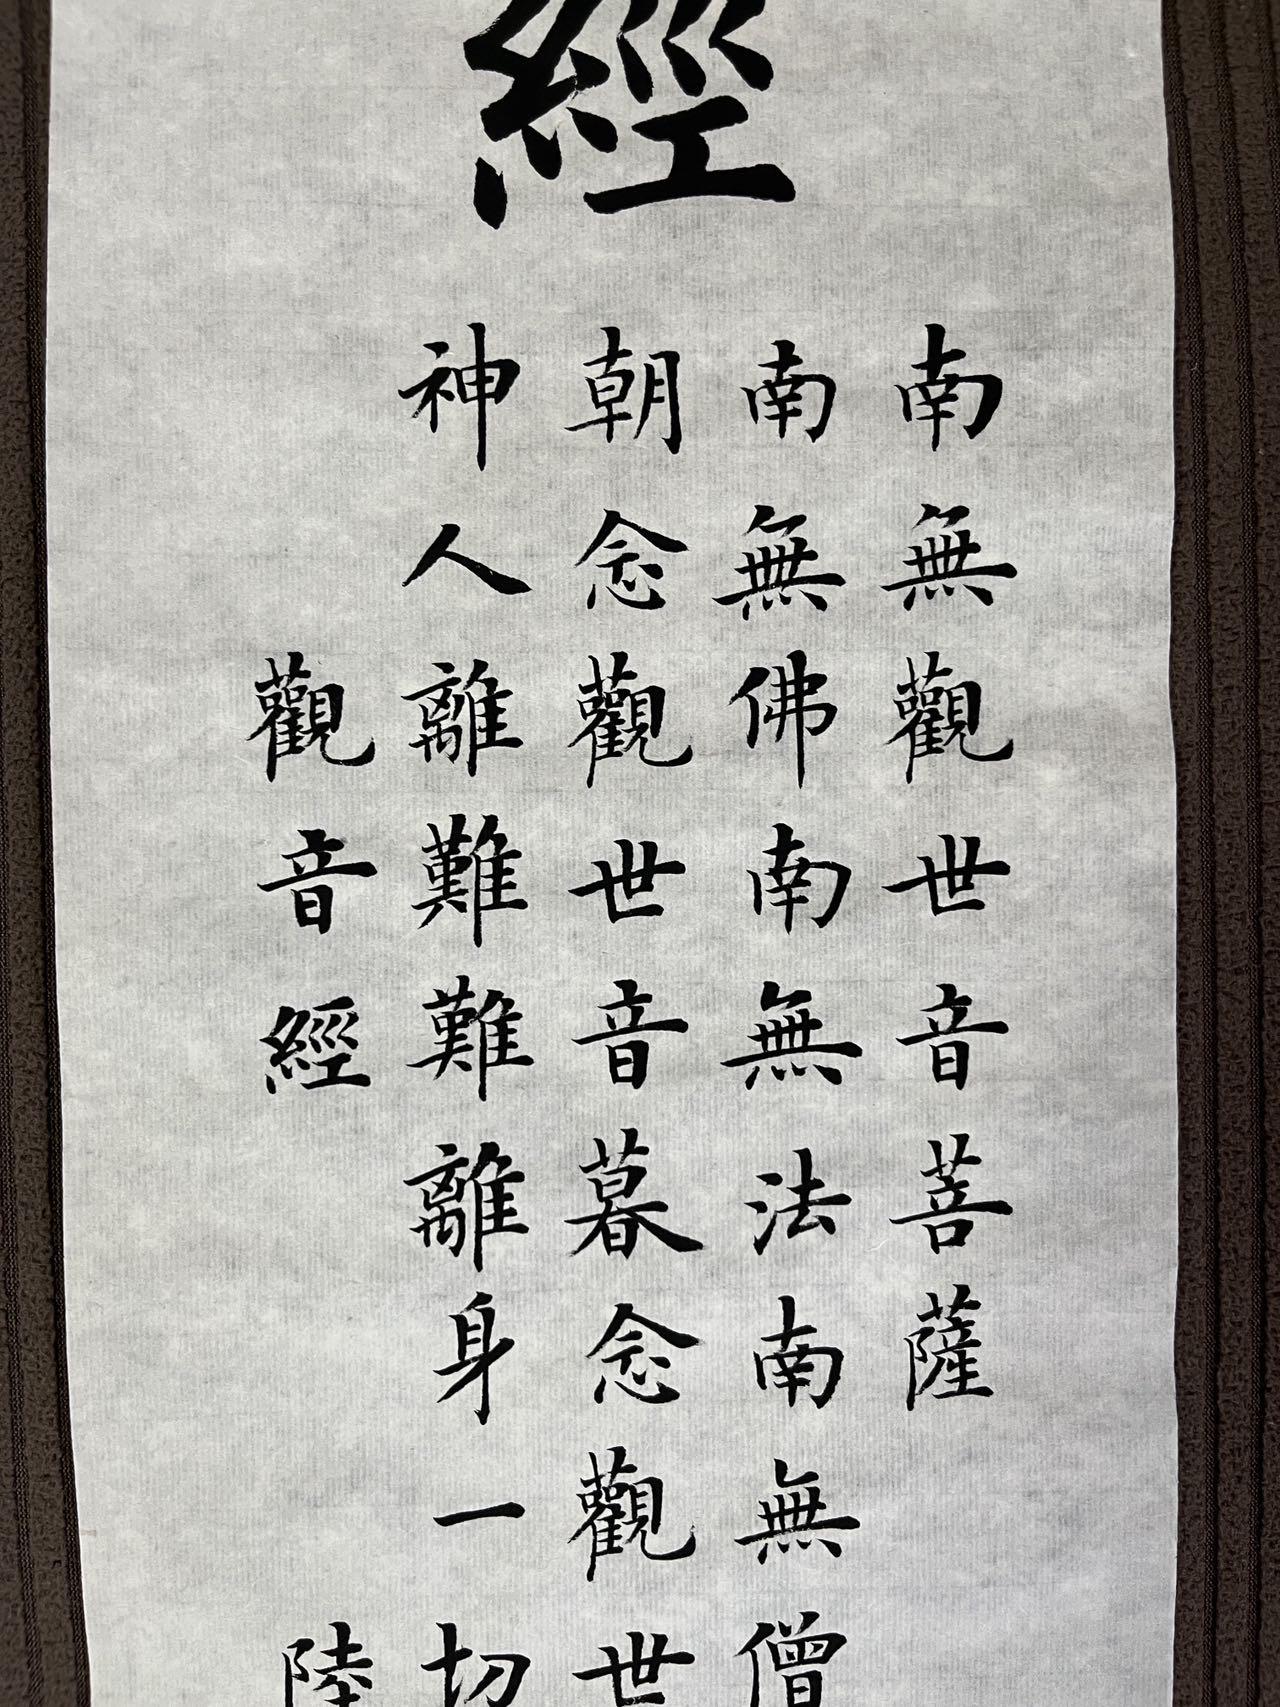 經
南無觀世音菩薩
南無佛南無法南無僧
朝念觀世音暮念觀世
神人離難難離身一切
觀音經
陸